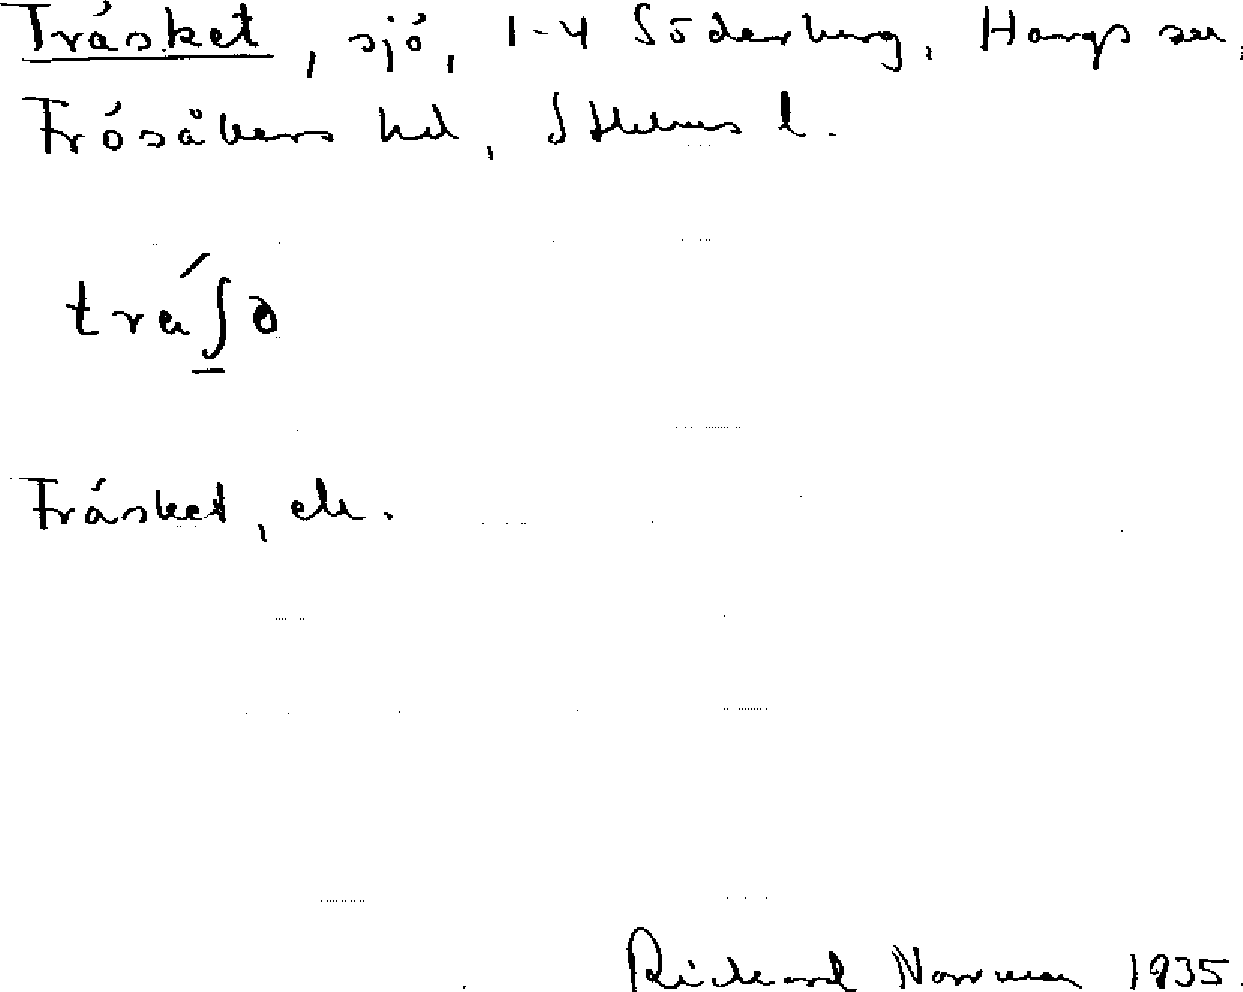 Träsket, sjö, 1-4 Söderberg, Hargs sn,
Frösåkers hd, Sthlms l.
trä́ʃə
Träsket, ek.
Rickard Norrman 1935.